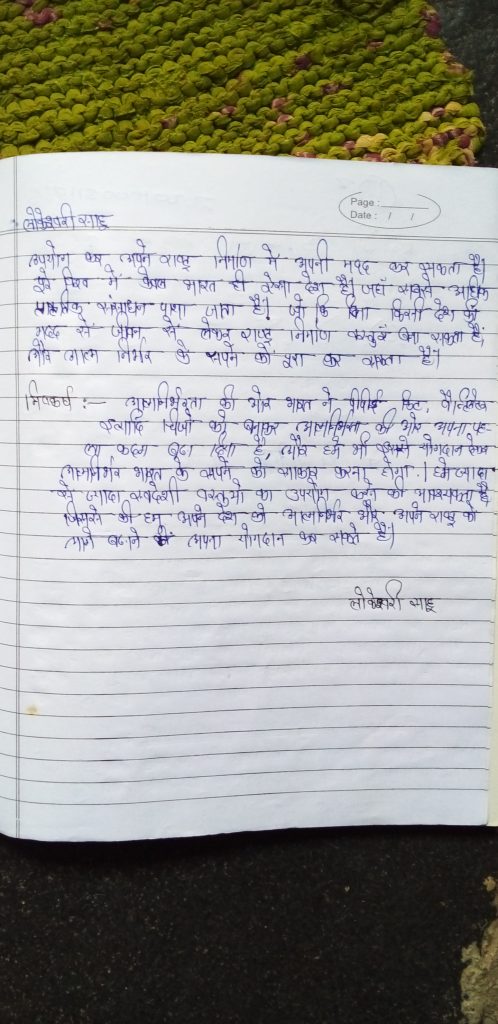 Page :
Date : / /
लोकेश्वरी साहू
उपयोग कर अपने राष्ट्र निर्माण में अपनी मदद कर सकता है।
पूरे विश्व में केवल भारत ही ऐसा देश है। जहाँ सबसे अधिक
प्राकृतिक संसाधन पाया जाता है। जो कि बिना किसी देश की
मदद से जीवन से लेकर राष्ट्र निर्माण वस्तुएँ बना सकता है,
और आत्म निर्भर के सपने को पूरा कर सकता है।
निष्कर्ष :- आत्मनिर्भरता की ओर भारत ने पीपीई किट, वेन्टिलेटर
इत्यादि चीजों को बनाकर आत्मनिर्भरता की ओर अपना पह
ला कदम बढ़ा दिया है, और हमे भी इसमे योगदान देकर
आत्मनिर्भर भारत के सपने को साकार करना होगा। हमे ज्यादा
से ज्यादा स्वदेशी वस्तुओ का उपयोग करने की आवश्यकता है
जिससे की हम अपने देश को आत्मनिर्भर और अपने राष्ट्र को
आगे बढ़ाने में अपना योगदान कर सकते है।
लोकेश्वरी साहू